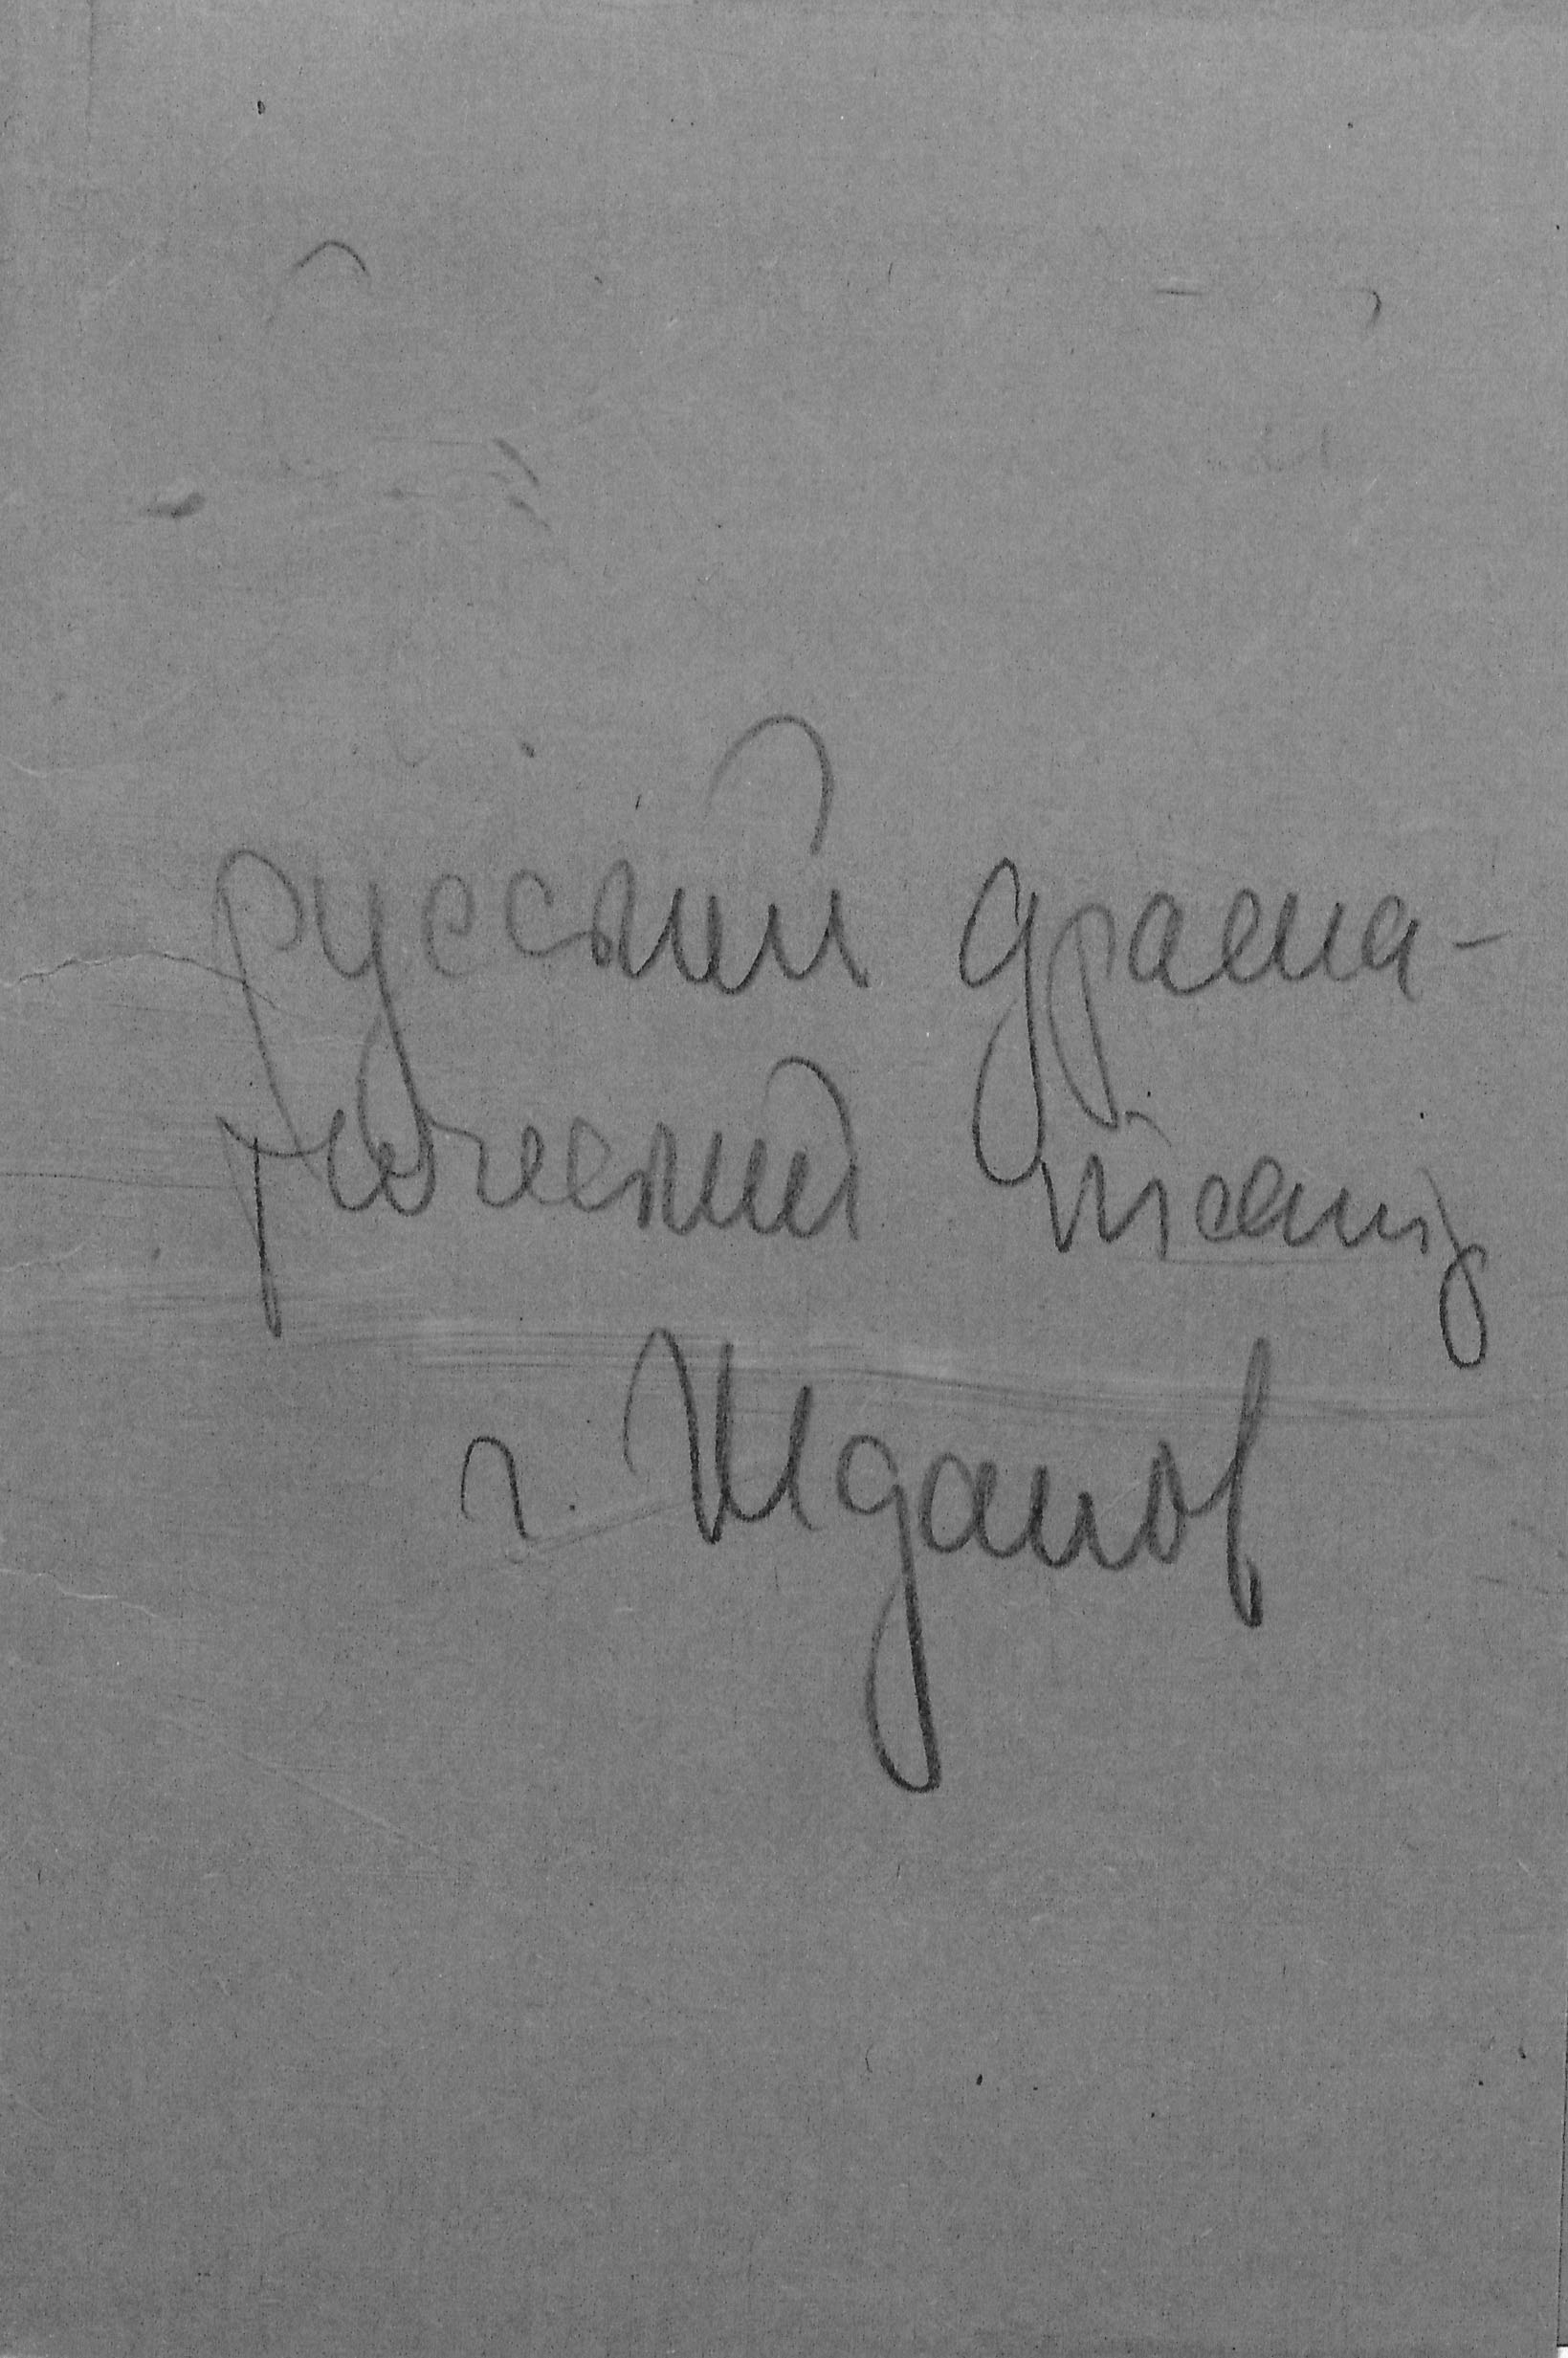 русский драма-
тический театр
г. Жданов